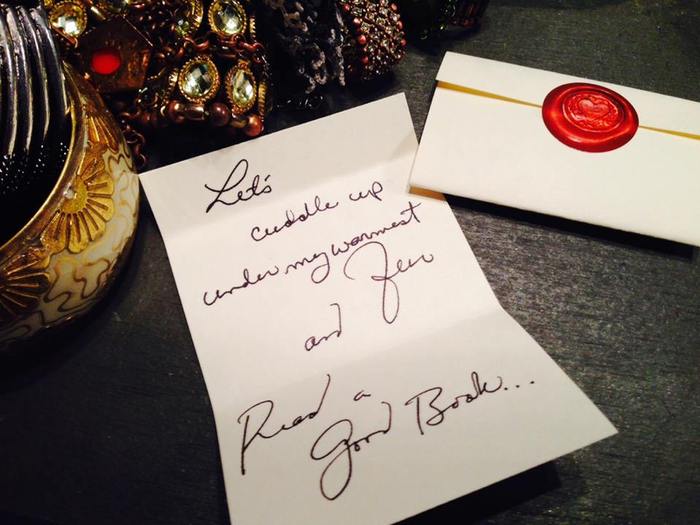 Let's
cuddle up
under my warmest
and Fur
Read a
Good Book...